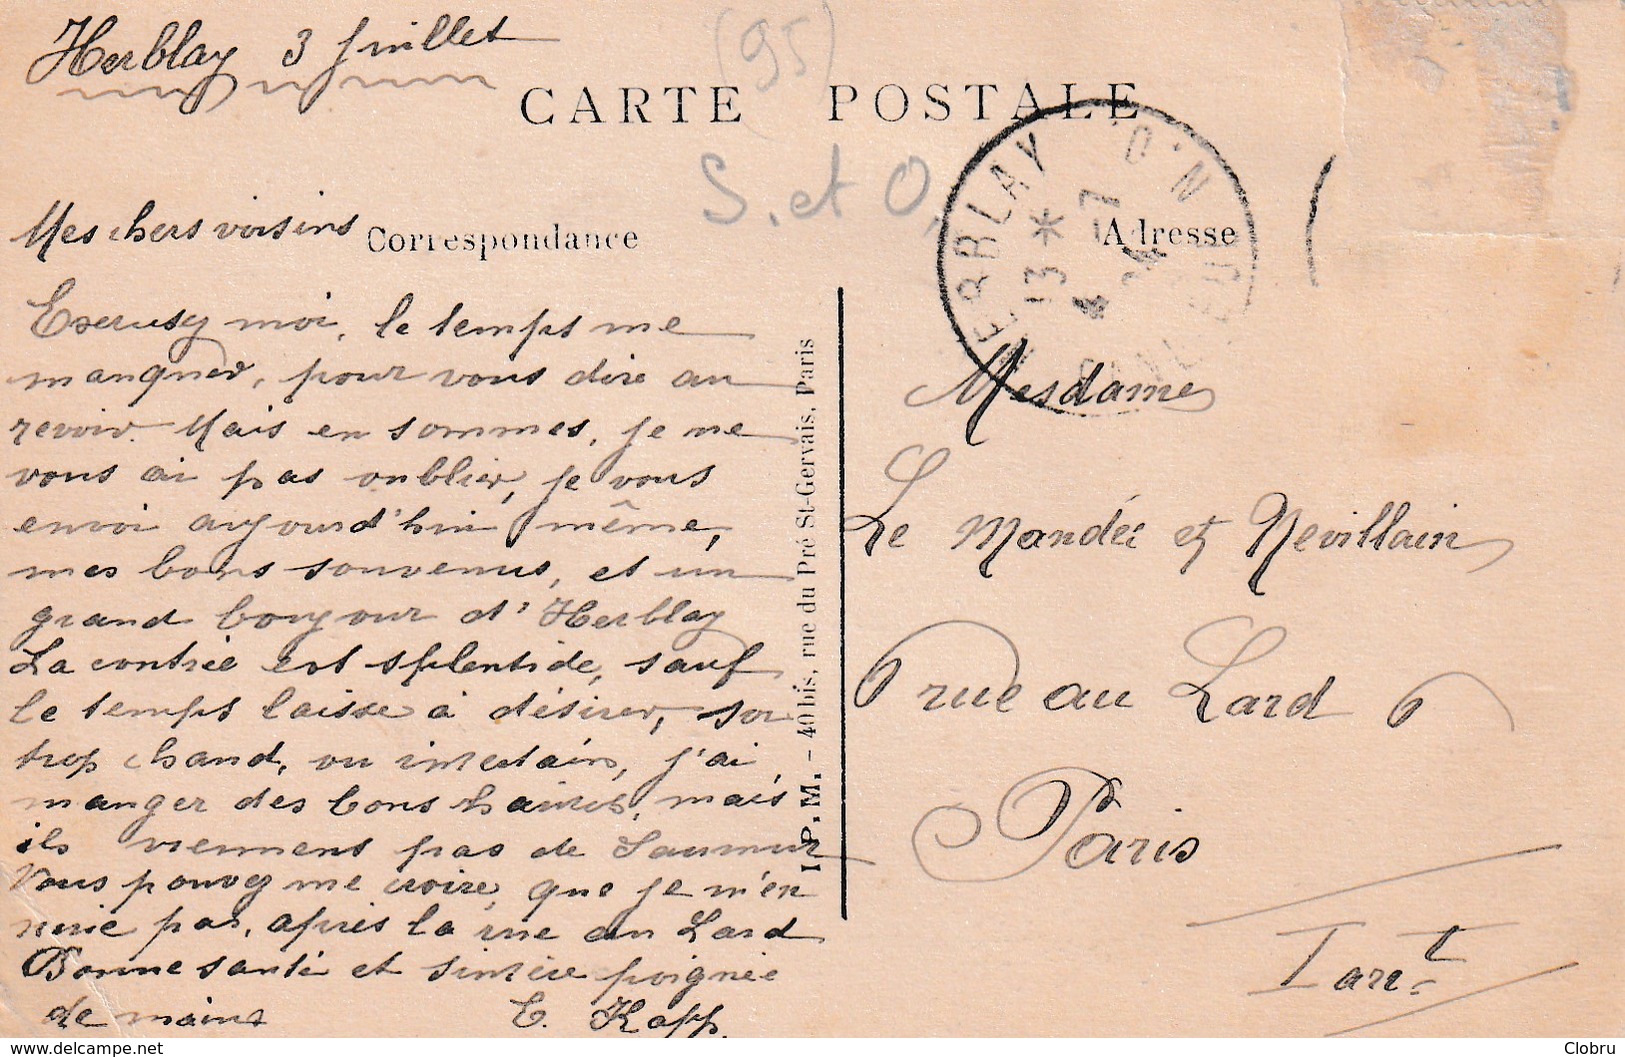 Herblay 3 Juillet
(95)
CARTE POSTALE
S. et O.
HERBLAY
13 *
4 -7
Mes chers voisins
Correspondance
Adresse
Exerusez moi, le temps me
manquer, pour vous dire au
revoir. Mais en sommes, je ne
vous ai pas oublier, je vous
envoi aujourd'hui même,
mes bons souvenirs, et un
grand bonjour d'Herblay
La contrée est splentide, sauf
le temps laisse à désirer, soi
trop chaud, ou incertain, j'ai
manger des bons haricots, mais
ils viennent pas de Saumur
Vous pouvez me croire, que je m'en
nuie pas, après la rue au Lard
Bonne santé et sincère poignée
de mains
E. Kopp.
I. P. M. - 40 bis, rue du Pré St-Gervais, Paris
Mesdames
Le Mandéi et Nevillain
6 rue au Lard 6
Paris
Iarrt
delcampe.net
Clobru